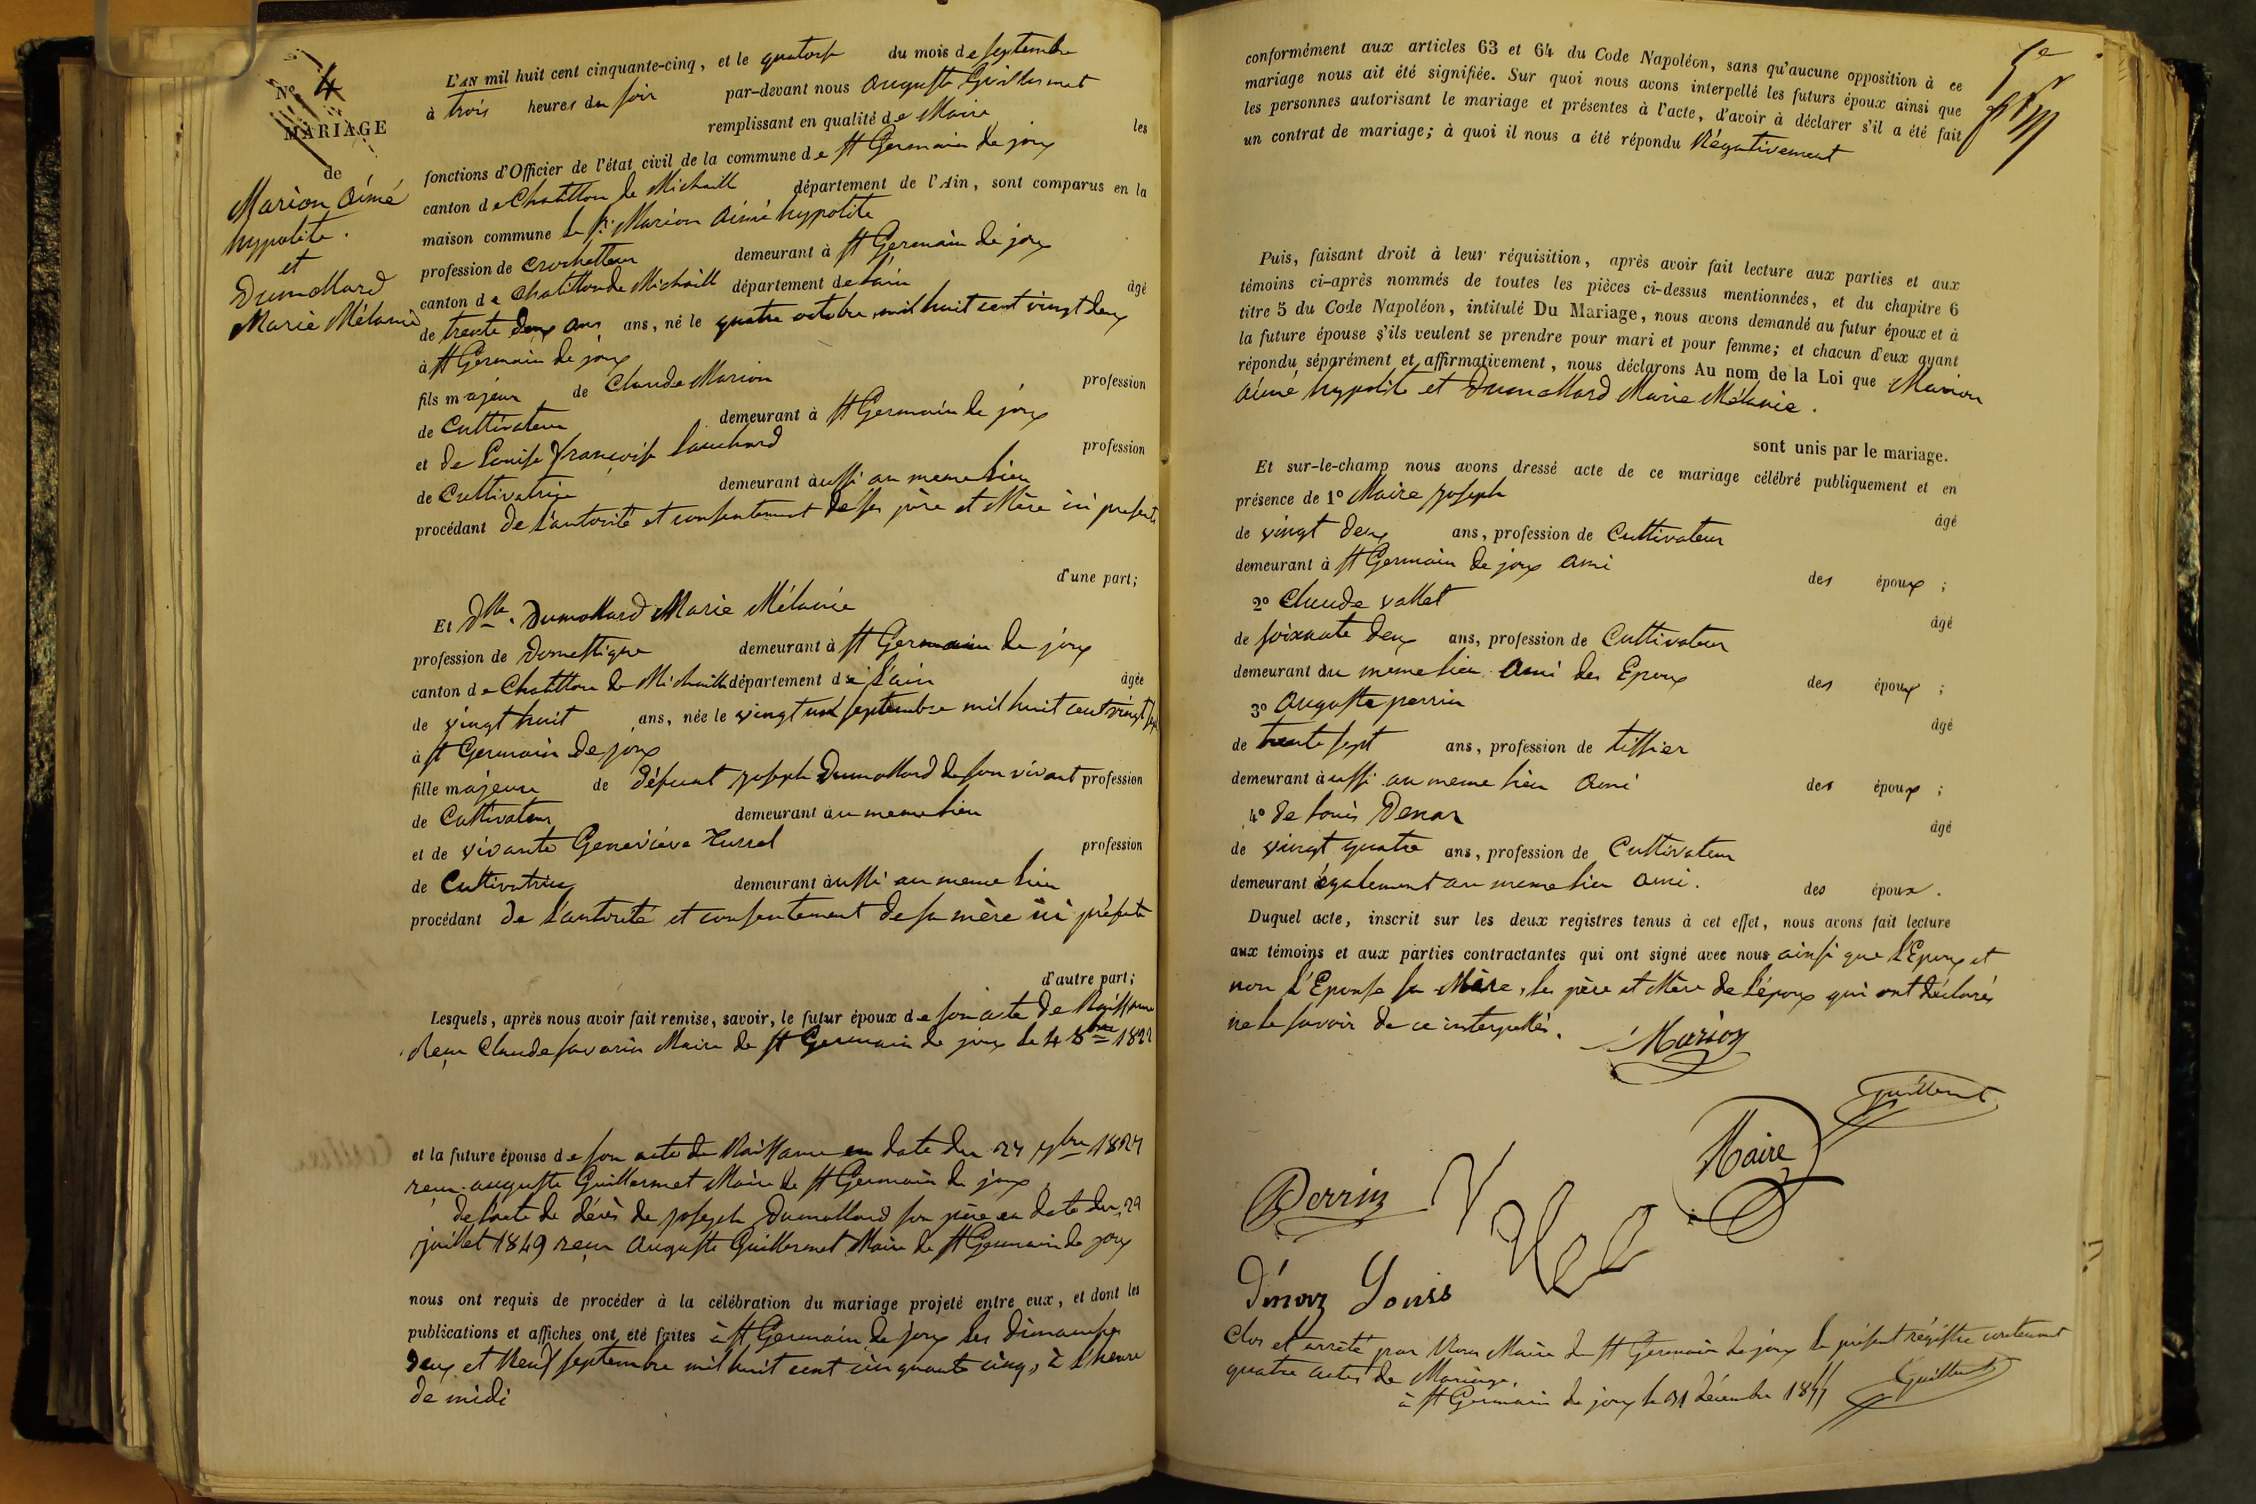 No 4
MARIAGE
de
Marion Aimé
hypolite.
et
Dumollard
Marie Mélanie
L'AN mil huit cent cinquante-cinq, et le quatorse du mois de septembre
à trois heures du soir par-devant nous auguste Guillermet
remplissant en qualité de Maire les
fonctions d'Officier de l'état civil de la commune de St Germain de joux
canton de Chatillon de Michaille département de l'Ain, sont comparus en la
maison commune le Sr Marion Aimé hypolite
profession de crochetteur demeurant à St Germain de joux
canton de Chatillon de Michaille département de l'ain âgé
de trente deux ans ans, né le quatre octobre mil huit cent vingt deux
à St Germain de joux
fils majeur de Claude Marion profession
de Cultivateur demeurant à St Germain de joux
et de Louise françoise profession
de Cultivatrice demeurant aussi au meme lieu
procédant de l'autorité et consentement de ses père et Mère ici presents
d'une part;
Et Dlle. Dumollard Marie Mélanie
profession de Domestique demeurant à St Germain de joux
canton de Chatillon de Michaille département de l'ain âgée
de vingt huit ans, née le vingt septembre mil huit cent vingt sept
à St Germain de joux
fille majeure de défunt joseph Dumollard de son vivant profession
de Cultivateur demeurant au meme lieu
et de vivante Geneviève profession
de Cultivatrice demeurant aussi au meme lieu
procédant de l'autorité et consentement de sa mère ici présente
d'autre part;
Lesquels, après nous avoir fait remise, savoir, le futur époux de son acte de Naissance
Reçu Claude savarin Maire de St Germain de joux le 4 8bre 1822
et la future épouse de son acte de Naissance en date du 27 7bre 1827
reçu auguste Guillermet Maire de St Germain de joux
de l'acte de décès de joseph Dumollard son père en date du 29
juillet 1849 reçu Auguste Guillermet Maire de St Germain de joux
nous ont requis de procéder à la célébration du mariage projeté entre eux, et dont les
publications et affiches ont été faites à St Germain de joux les dimanches
deux et Neuf septembre mil huit cent cinquante cinq, à l'heure
de midi
conformément aux articles 63 et 64 du Code Napoléon, sans qu'aucune opposition à ce
mariage nous ait été signifiée. Sur quoi nous avons interpellé les futurs époux ainsi que
les personnes autorisant le mariage et présentes à l'acte, d'avoir à déclarer s'il a été fait
un contrat de mariage; à quoi il nous a été répondu Négativement
Puis, faisant droit à leur réquisition, après avoir fait lecture aux parties et aux
témoins ci-après nommés de toutes les pièces ci-dessus mentionnées, et du chapitre 6
titre 5 du Code Napoléon, intitulé Du Mariage, nous avons demandé au futur époux et à
la future épouse s'ils veulent se prendre pour mari et pour femme; et chacun d'eux ayant
répondu séparément et affirmativement, nous déclarons Au nom de la Loi que Marion
Aimé hypolite et Dumollard Marie Mélanie.
sont unis par le mariage.
Et sur-le-champ nous avons dressé acte de ce mariage célébré publiquement et en
présence de 1o Maire joseph
âgé
de vingt deux ans, profession de Cultivateur
demeurant à St Germain de joux ami des époux;
2o Claude vallet
âgé
de soixante deux ans, profession de Cultivateur
demeurant au meme lieu ami des Epoux des époux;
3o Auguste perrin
âgé
de trente sept ans, profession de tissier
demeurant aussi au meme lieu Ami des époux;
4o de Louis Denoz
âgé
de vingt quatre ans, profession de Cultivateur
demeurant également au meme lieu ami. des époux.
Duquel acte, inscrit sur les deux registres tenus à cet effet, nous avons fait lecture
aux témoins et aux parties contractantes qui ont signé avec nous ainsi que l'Epoux et
non l'Epouse sa Mère, les père et Mère de l'époux qui ont déclarés
ne le savoir de ce interpellés.
Marion
Guillermet
Maire
Perrin
Dénoz Louis
Clos et arrêté par Nous Maire de St Germain de joux le présent régistre contenant
quatre actes de Mariage.
à St Germain de joux le 31 décembre 1855
Guillermet